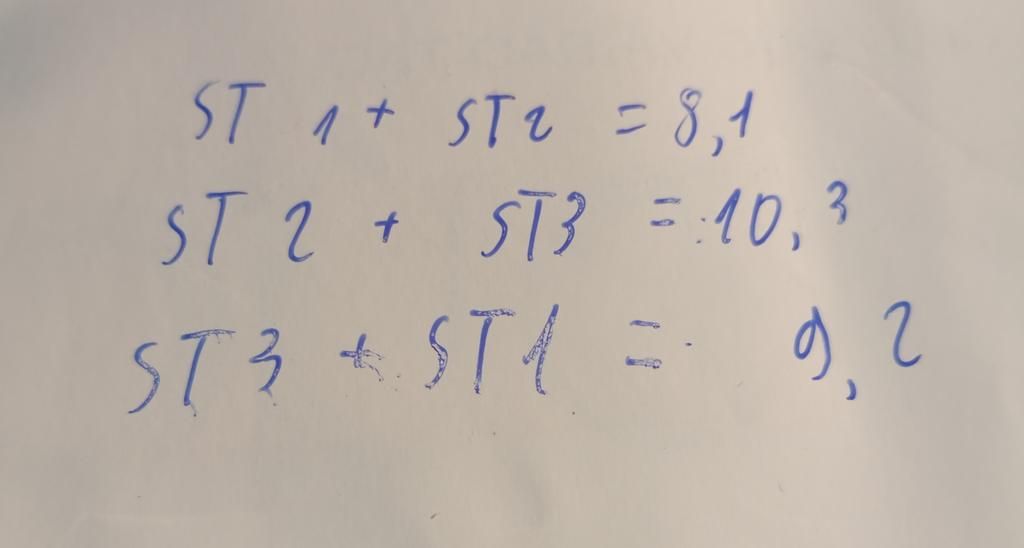 ST 1 + ST2 = 8,1
ST 2 + ST3 = 10,3
ST3 + ST1 = 9,2